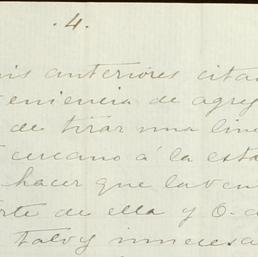 . 4 .
mis anteriores cita
eniencia de agre
de tirar una line
cercano á la esta
hacer que la ven
rte de ella y O. a
taloy innecesa